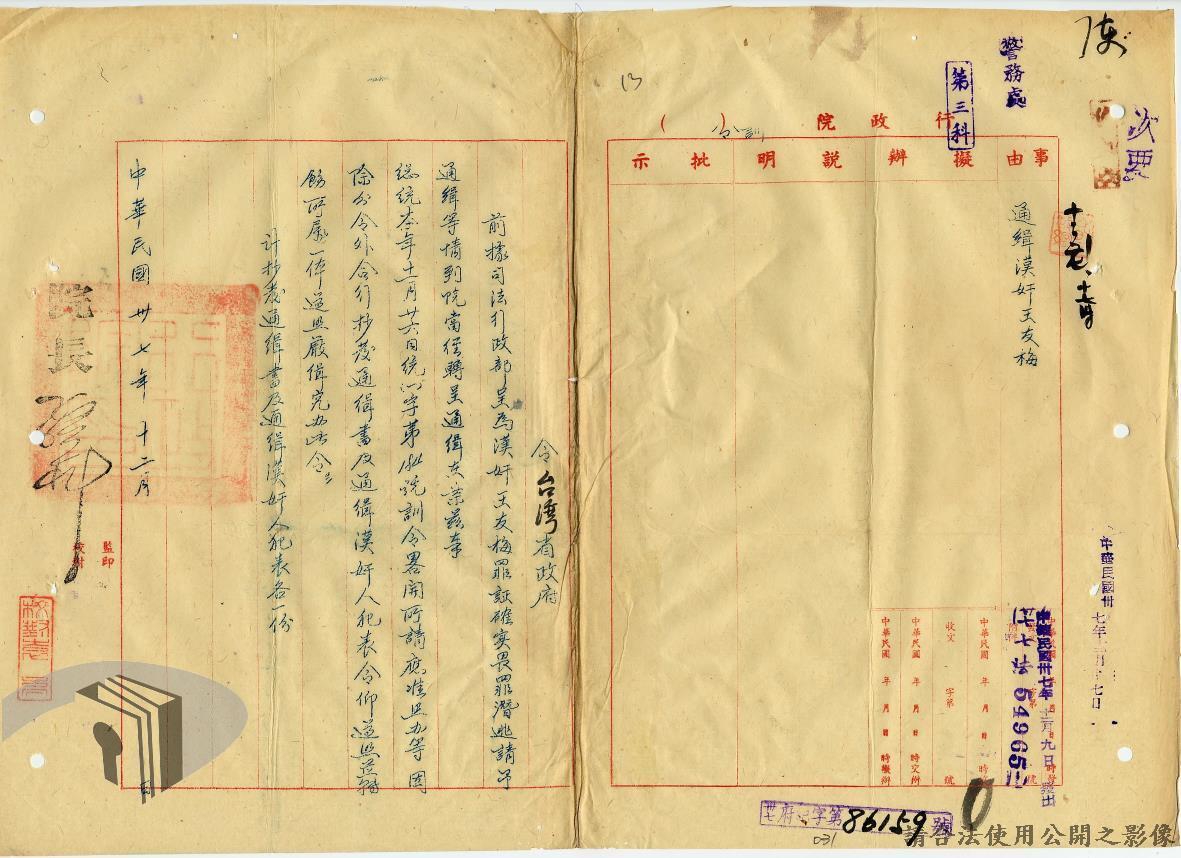 陳
次要
警務處
第三科
行政院（訓令）
事由
擬辦
說明
批示
通緝漢奸王友梅
中華民國卅七年
中華民國卅七年十二月九日發出
54965
中華民國 年 月 日 時
收文 字第 號
中華民國 年 月 日 時交辦
中華民國 年 月 日 時擬辦
卅七府 字第86159號
031
令台灣省政府
前據司法行政部呈為漢奸王友梅罪証確實畏罪潛逃請予
通緝等情到院當經轉呈通緝在案茲奉
總統本年十一月廿六日統 字第 號訓令畧開所請應准照办等因
除分令外合行抄發通緝書及通緝漢奸人犯表令仰遵照並轉
飭所屬一体遵照嚴緝究办此令
計抄發通緝書及通緝漢奸人犯表各一份
中華民國卅七年十二月 日
院長 孫科
監印
校對
請合法使用公開之影像